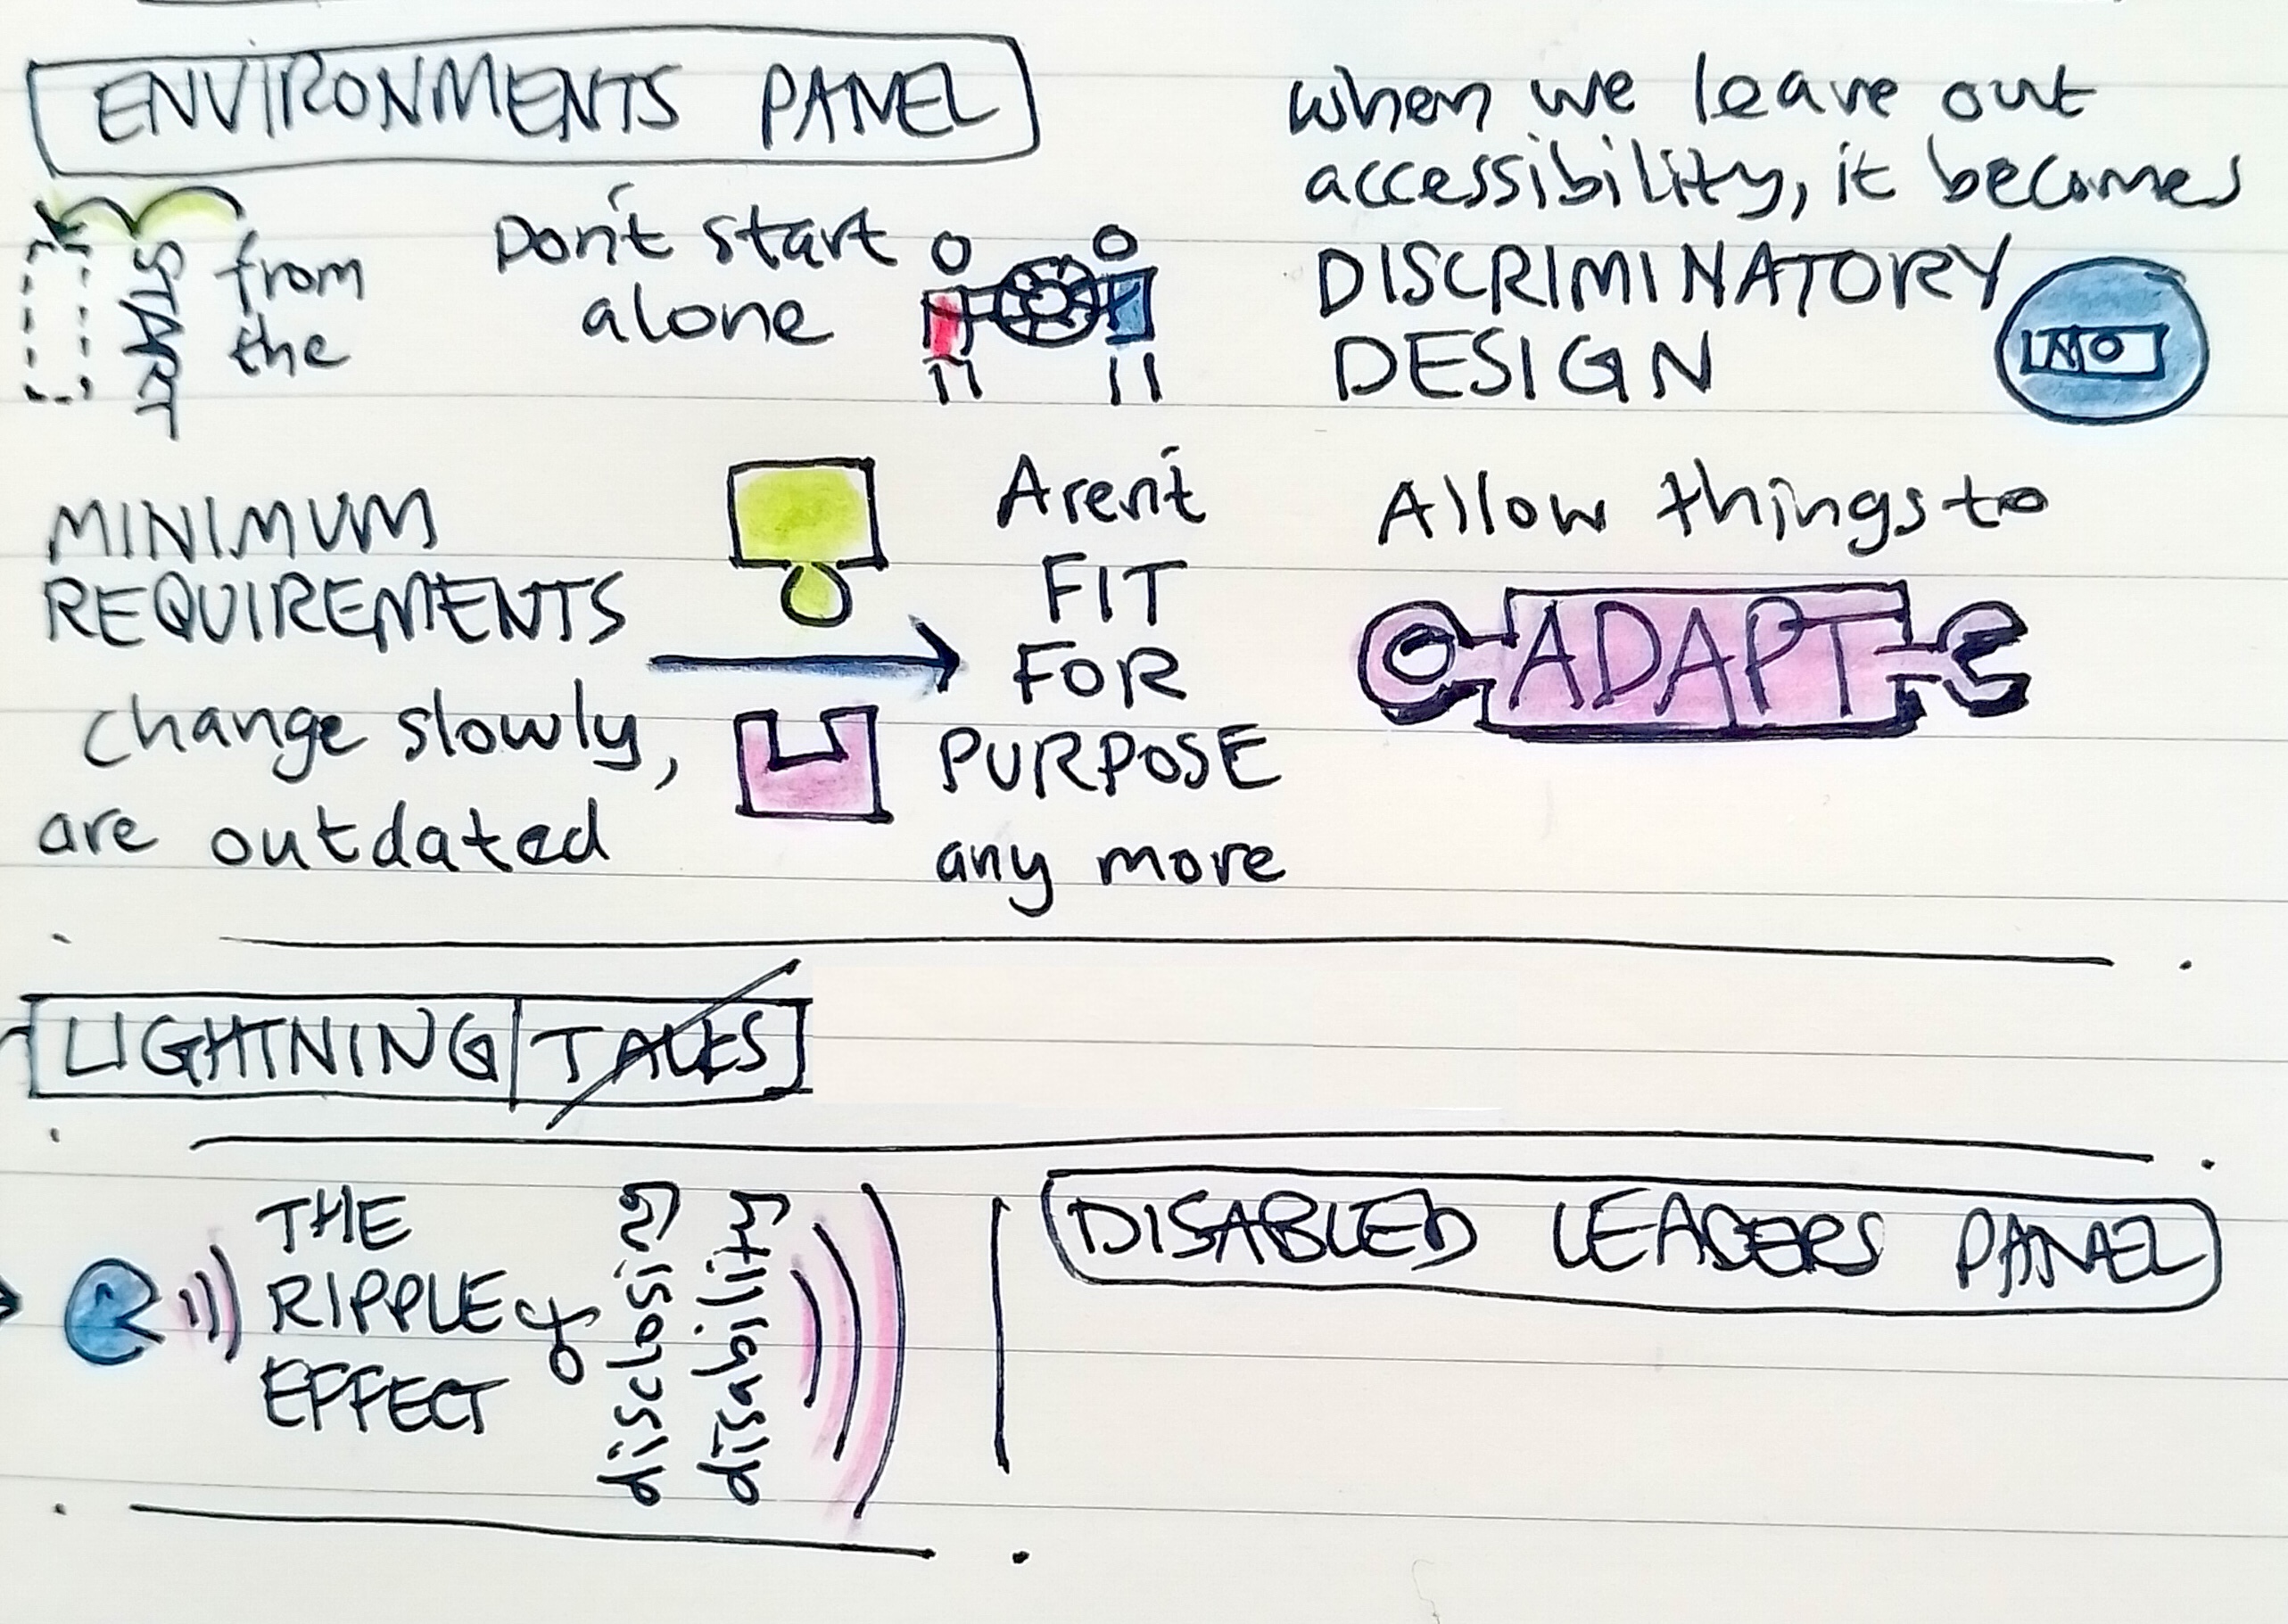 ENVIRONMENTS PANEL
START
from
the
Don't start
alone
when we leave out
accessibility, it becomes
DISCRIMINATORY
DESIGN
NO
MINIMUM
REQUIREMENTS
change slowly,
are outdated
Aren't
FIT
FOR
PURPOSE
any more
Allow things to
ADAPT
LIGHTNING TALKS
THE
RIPPLE
EFFECT
of
disclosing
disability
DISABLED LEADERS PANEL